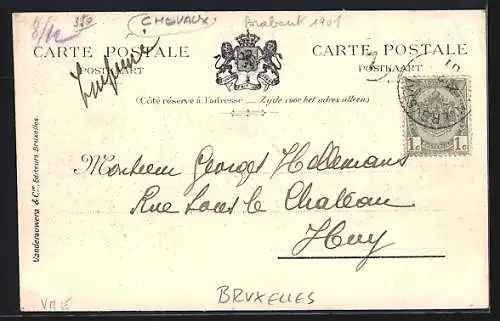 CHEVAUX
Brabant 1901
CARTE POSTALE CARTE POSTALE
POSTKAART POSTKAART
(Côté réservé à l'adresse — Zijde voor het adres alleen)
1c 1c
Monsieur Georges Hollemans
Rue Sous le Chateau
Huy
Vanderauwera & Cie, Editeurs Bruxelles.
BRUXELLES